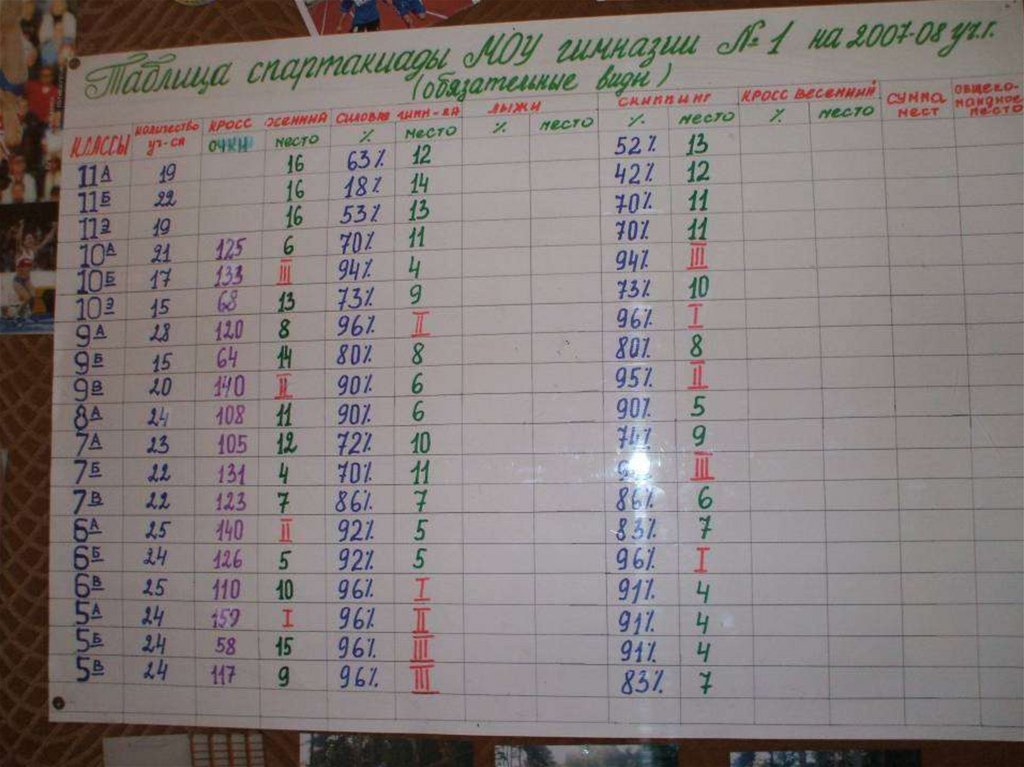 Таблица спартакиады МОУ гимназии № 1 на 2007-08 уч.г.
(обязательные виды)
КЛАССЫ количество уч-ся КРОСС ОСЕННИЙ СИЛОВАЯ ГИМН-КА ЛЫЖИ СКИППИНГ КРОСС ВЕСЕННИЙ СУММА МЕСТ ОБЩЕКО-МАНДНОЕ МЕСТО
ОЧКИ место % место % место % место % место
11А 19 16 63% 12 52% 13
11Б 22 16 18% 14 42% 12
11Э 19 16 53% 13 70% 11
10А 21 125 6 70% 11 70% 11
10Б 17 133 III 94% 4 94% III
10Э 15 68 13 73% 9 73% 10
9А 28 120 8 96% II 96% I
9Б 15 64 14 80% 8 80% 8
9В 20 140 II 90% 6 95% II
8А 24 108 11 90% 6 90% 5
7А 23 105 12 72% 10 9
7Б 22 131 4 70% 11 III
7В 22 123 7 86% 7 86% 6
6А 25 140 II 92% 5 83% 7
6Б 24 126 5 92% 5 96% I
6В 25 110 10 96% I 91% 4
5А 24 159 I 96% II 91% 4
5Б 24 58 15 96% III 91% 4
5В 24 117 9 96% III 83% 7